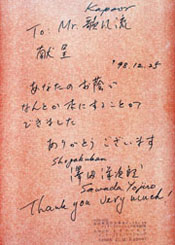 Kapoor
To: Mr. 歌比流
献呈
'98.12.25
あなたのお蔭で
なんとか本にすることが
できました
ありがとうございます
Shogakukan
澤田洋次郎
Sawada Yojiro
Thank you very much!